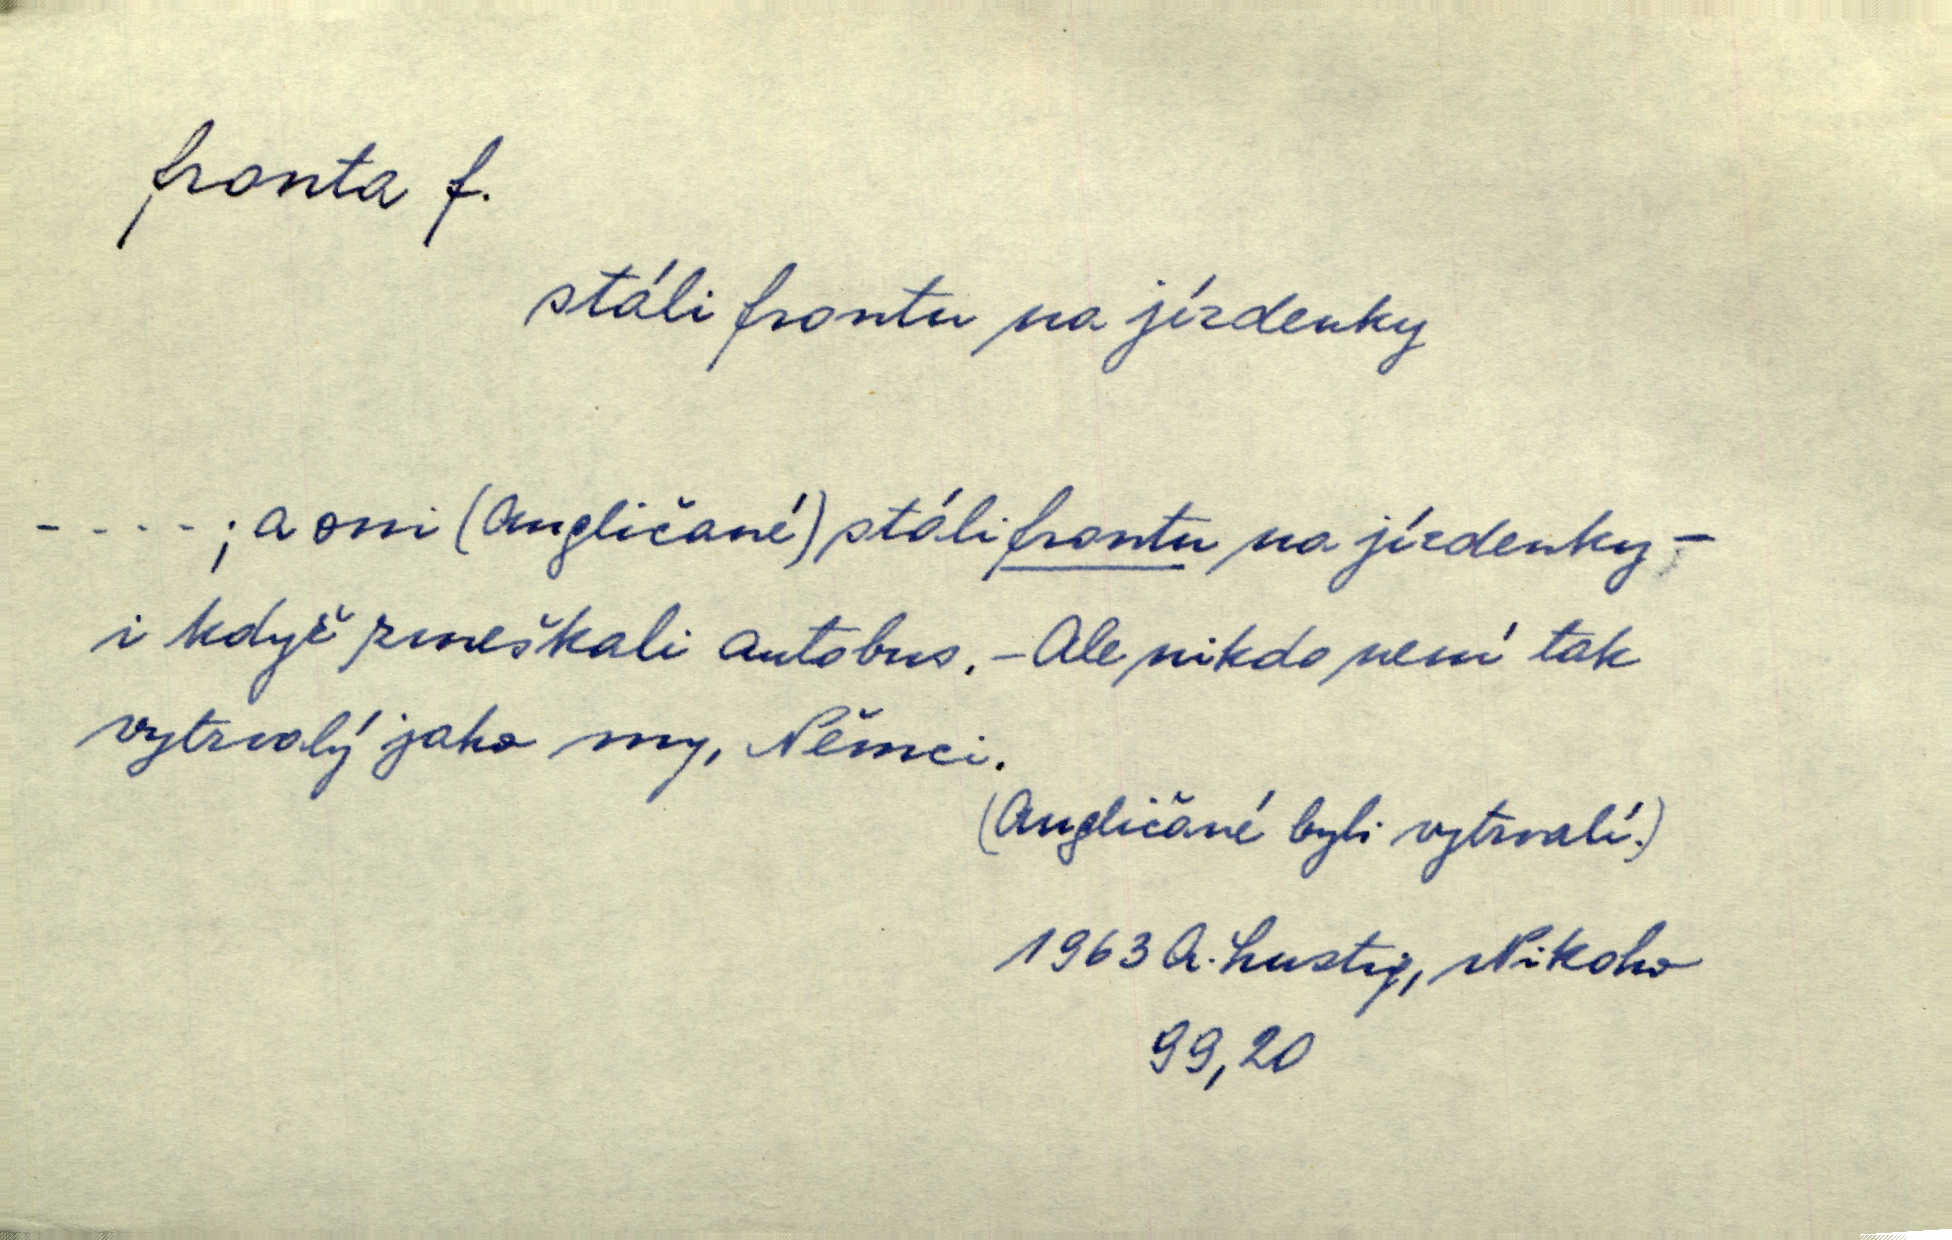 fronta f.
stáli frontu na jízdenky
- - - - -; a oni (Angličané) stáli frontu na jízdenky -
i když zmeškali autobus. - Ale nikdo není tak
vytrvalý jako my, Němci.
(Angličané byli vytrvalí.)
1963 A. Lustig, Nikoho
99,20